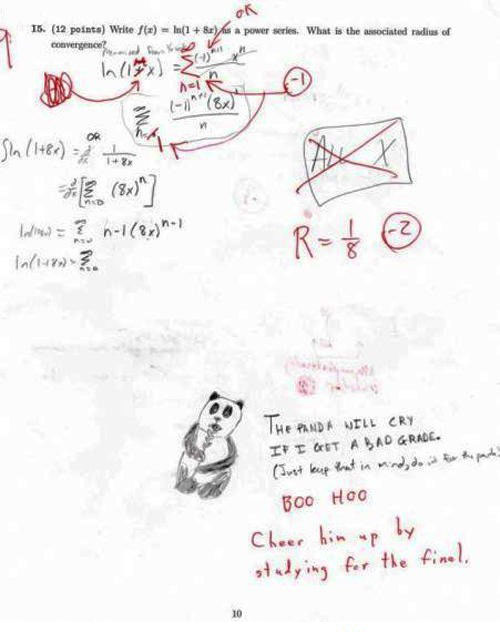 OK
15. (12 points) Write f(x) = ln(1 + 8x) as a power series. What is the associated radius of
convergence?
9
ln(1+x) = ∞ Σ n=1 (-1)^(n+1) x^n / n
-1
Σ n=1 (-1)^(n+1) (8x) / n
OR
∫ln(1+8x) = d/dx 1/(1+8x)
= d/dx [ ∞ Σ n=0 (8x)^n ]
= ∞ Σ n=0 n-1 (8x)^(n-1)
ln(1+8x) = ∞ Σ n=0
X
R = 1/8 -2
THE PANDA WILL CRY
IF I GET A BAD GRADE.
(Just keep that in mind, do it for the panda)
BOO HOO
Cheer him up by
studying for the final.
10